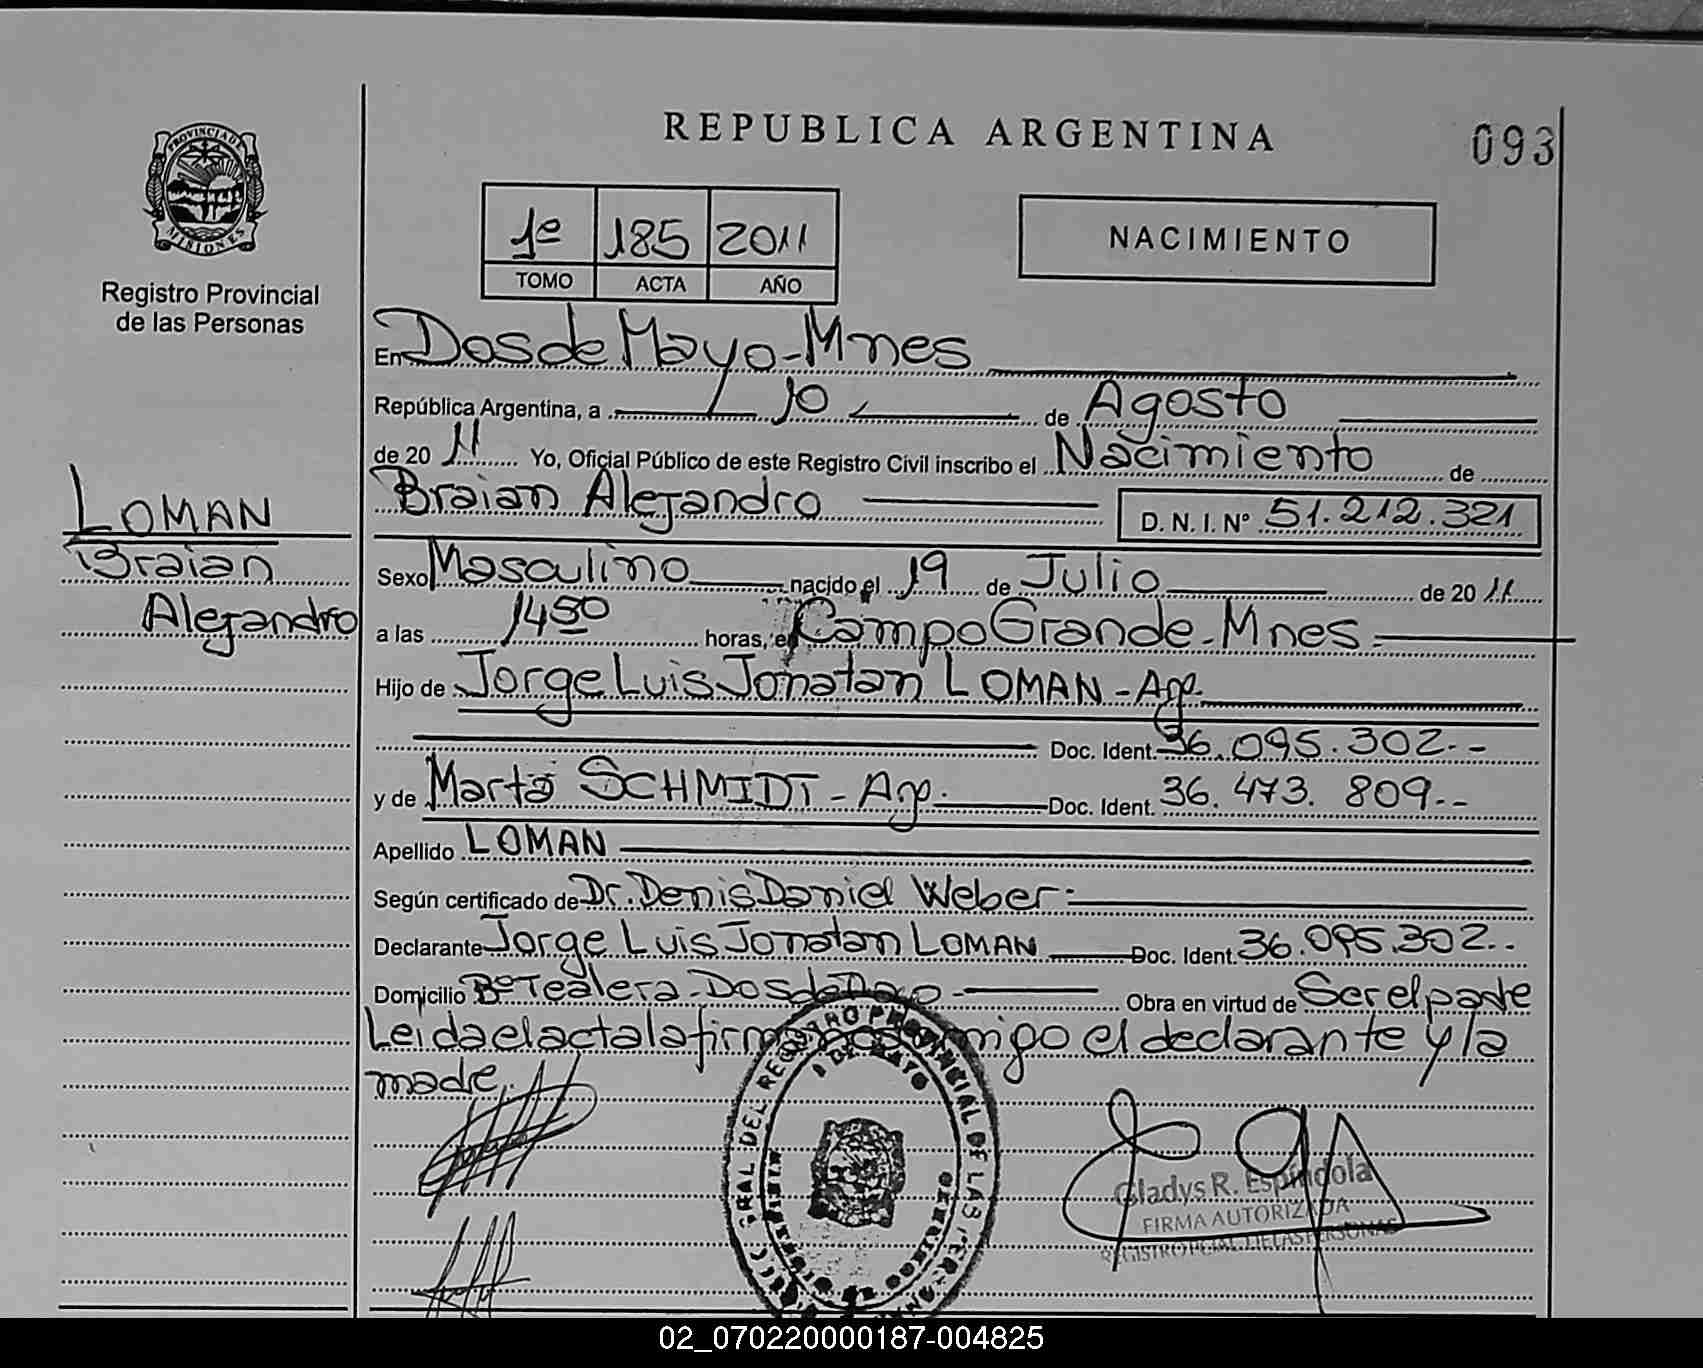 REPUBLICA ARGENTINA
093
PROVINCIA DE MISIONES
Registro Provincial
de las Personas
1º 185 2011
TOMO ACTA AÑO
NACIMIENTO
En Dos de Mayo - Mnes
República Argentina, a 10 de Agosto
de 20 11 Yo, Oficial Público de este Registro Civil inscribo el Nacimiento de
Braian Alejandro D. N. I. Nº 51.212.321
LOMAN
Braian
Alejandro
Sexo Masculino nacido el 19 de Julio de 20 11
a las 1450 horas, en Campo Grande - Mnes
Hijo de Jorge Luis Jonatan LOMAN - Arg.
Doc. Ident. 36.095.302.-
y de Marta SCHMIDT - Arg. Doc. Ident. 36.473.809.-
Apellido LOMAN
Según certificado de Dr. Denis Daniel Weber
Declarante Jorge Luis Jonatan LOMAN Doc. Ident. 36.095.302..
Domicilio Bº Tealera - Dos de Mayo - Obra en virtud de Ser el padre
Leida el acta la firma conmigo el declarante y la
madre.
REGISTRO PROVINCIAL DE LAS PERSONAS
Gladys R. Espíndola
FIRMA AUTORIZADA
REGISTRO PCIAL. DE LAS PERSONAS
02_070220000187-004825